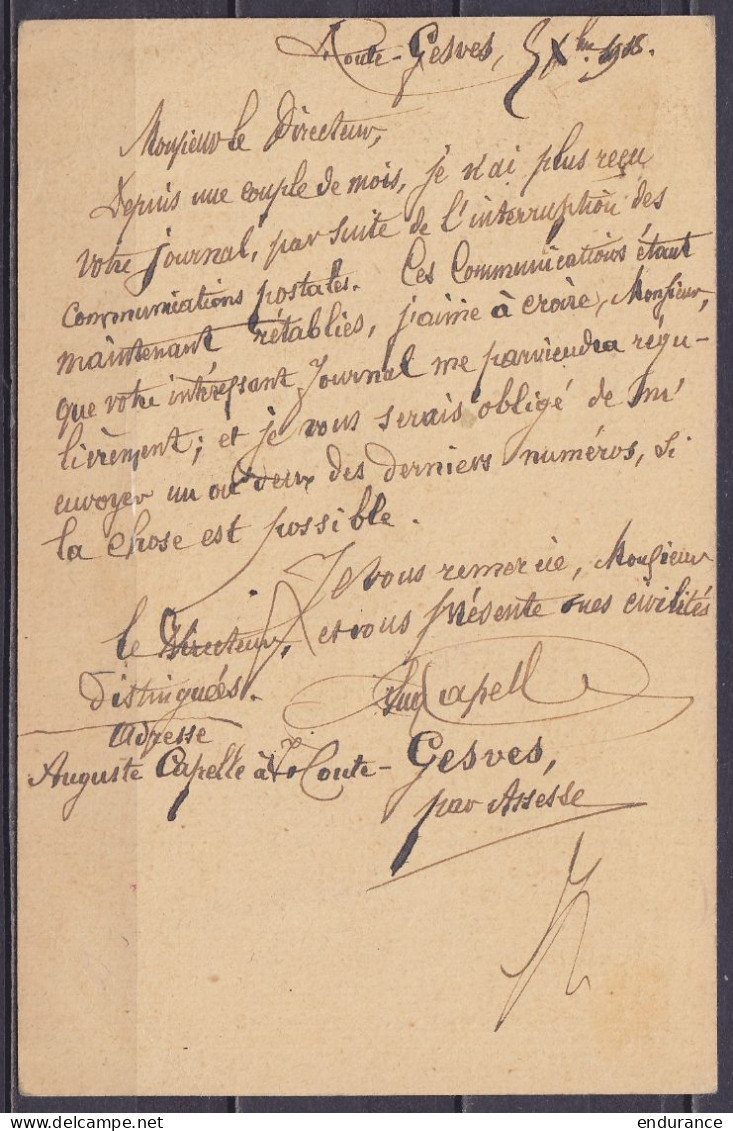 Haute-Gesves, 5 Xbre 1918.
Monsieur le Directeur,
Depuis une couple de mois, je n'ai plus reçu
votre journal, par suite de l'interruption des
communications postales. Ces Communications étant
maintenant rétablies, j'aime à croire, Monsieur,
que votre intéressant Journal me parviendra régu-
lièrement; et je vous serais obligé de m'
envoyer un ou deux des derniers numéros, si
la chose est possible.
Je vous remercie, Monsieur
le Directeur, et vous présente mes civilités
distinguées.
Aug Capelle
Adresse
Auguste Capelle à Haute-Gesves,
par Assesse
delcampe.net
endurance